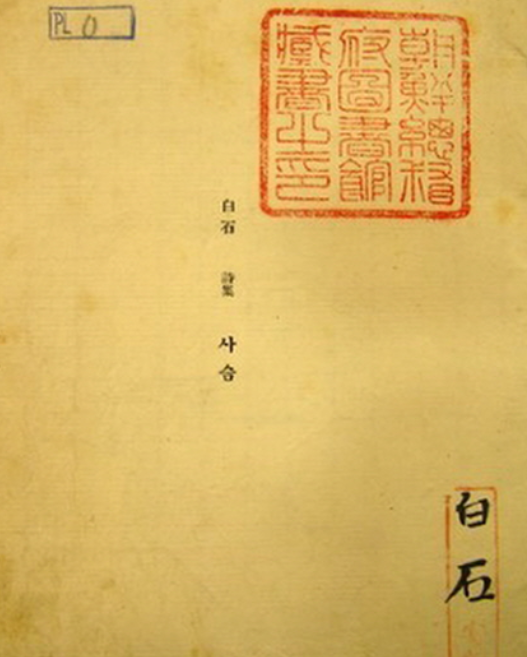 PL 0
朝鮮總督
府圖書館
藏書之印
白石 詩集 사슴
白石